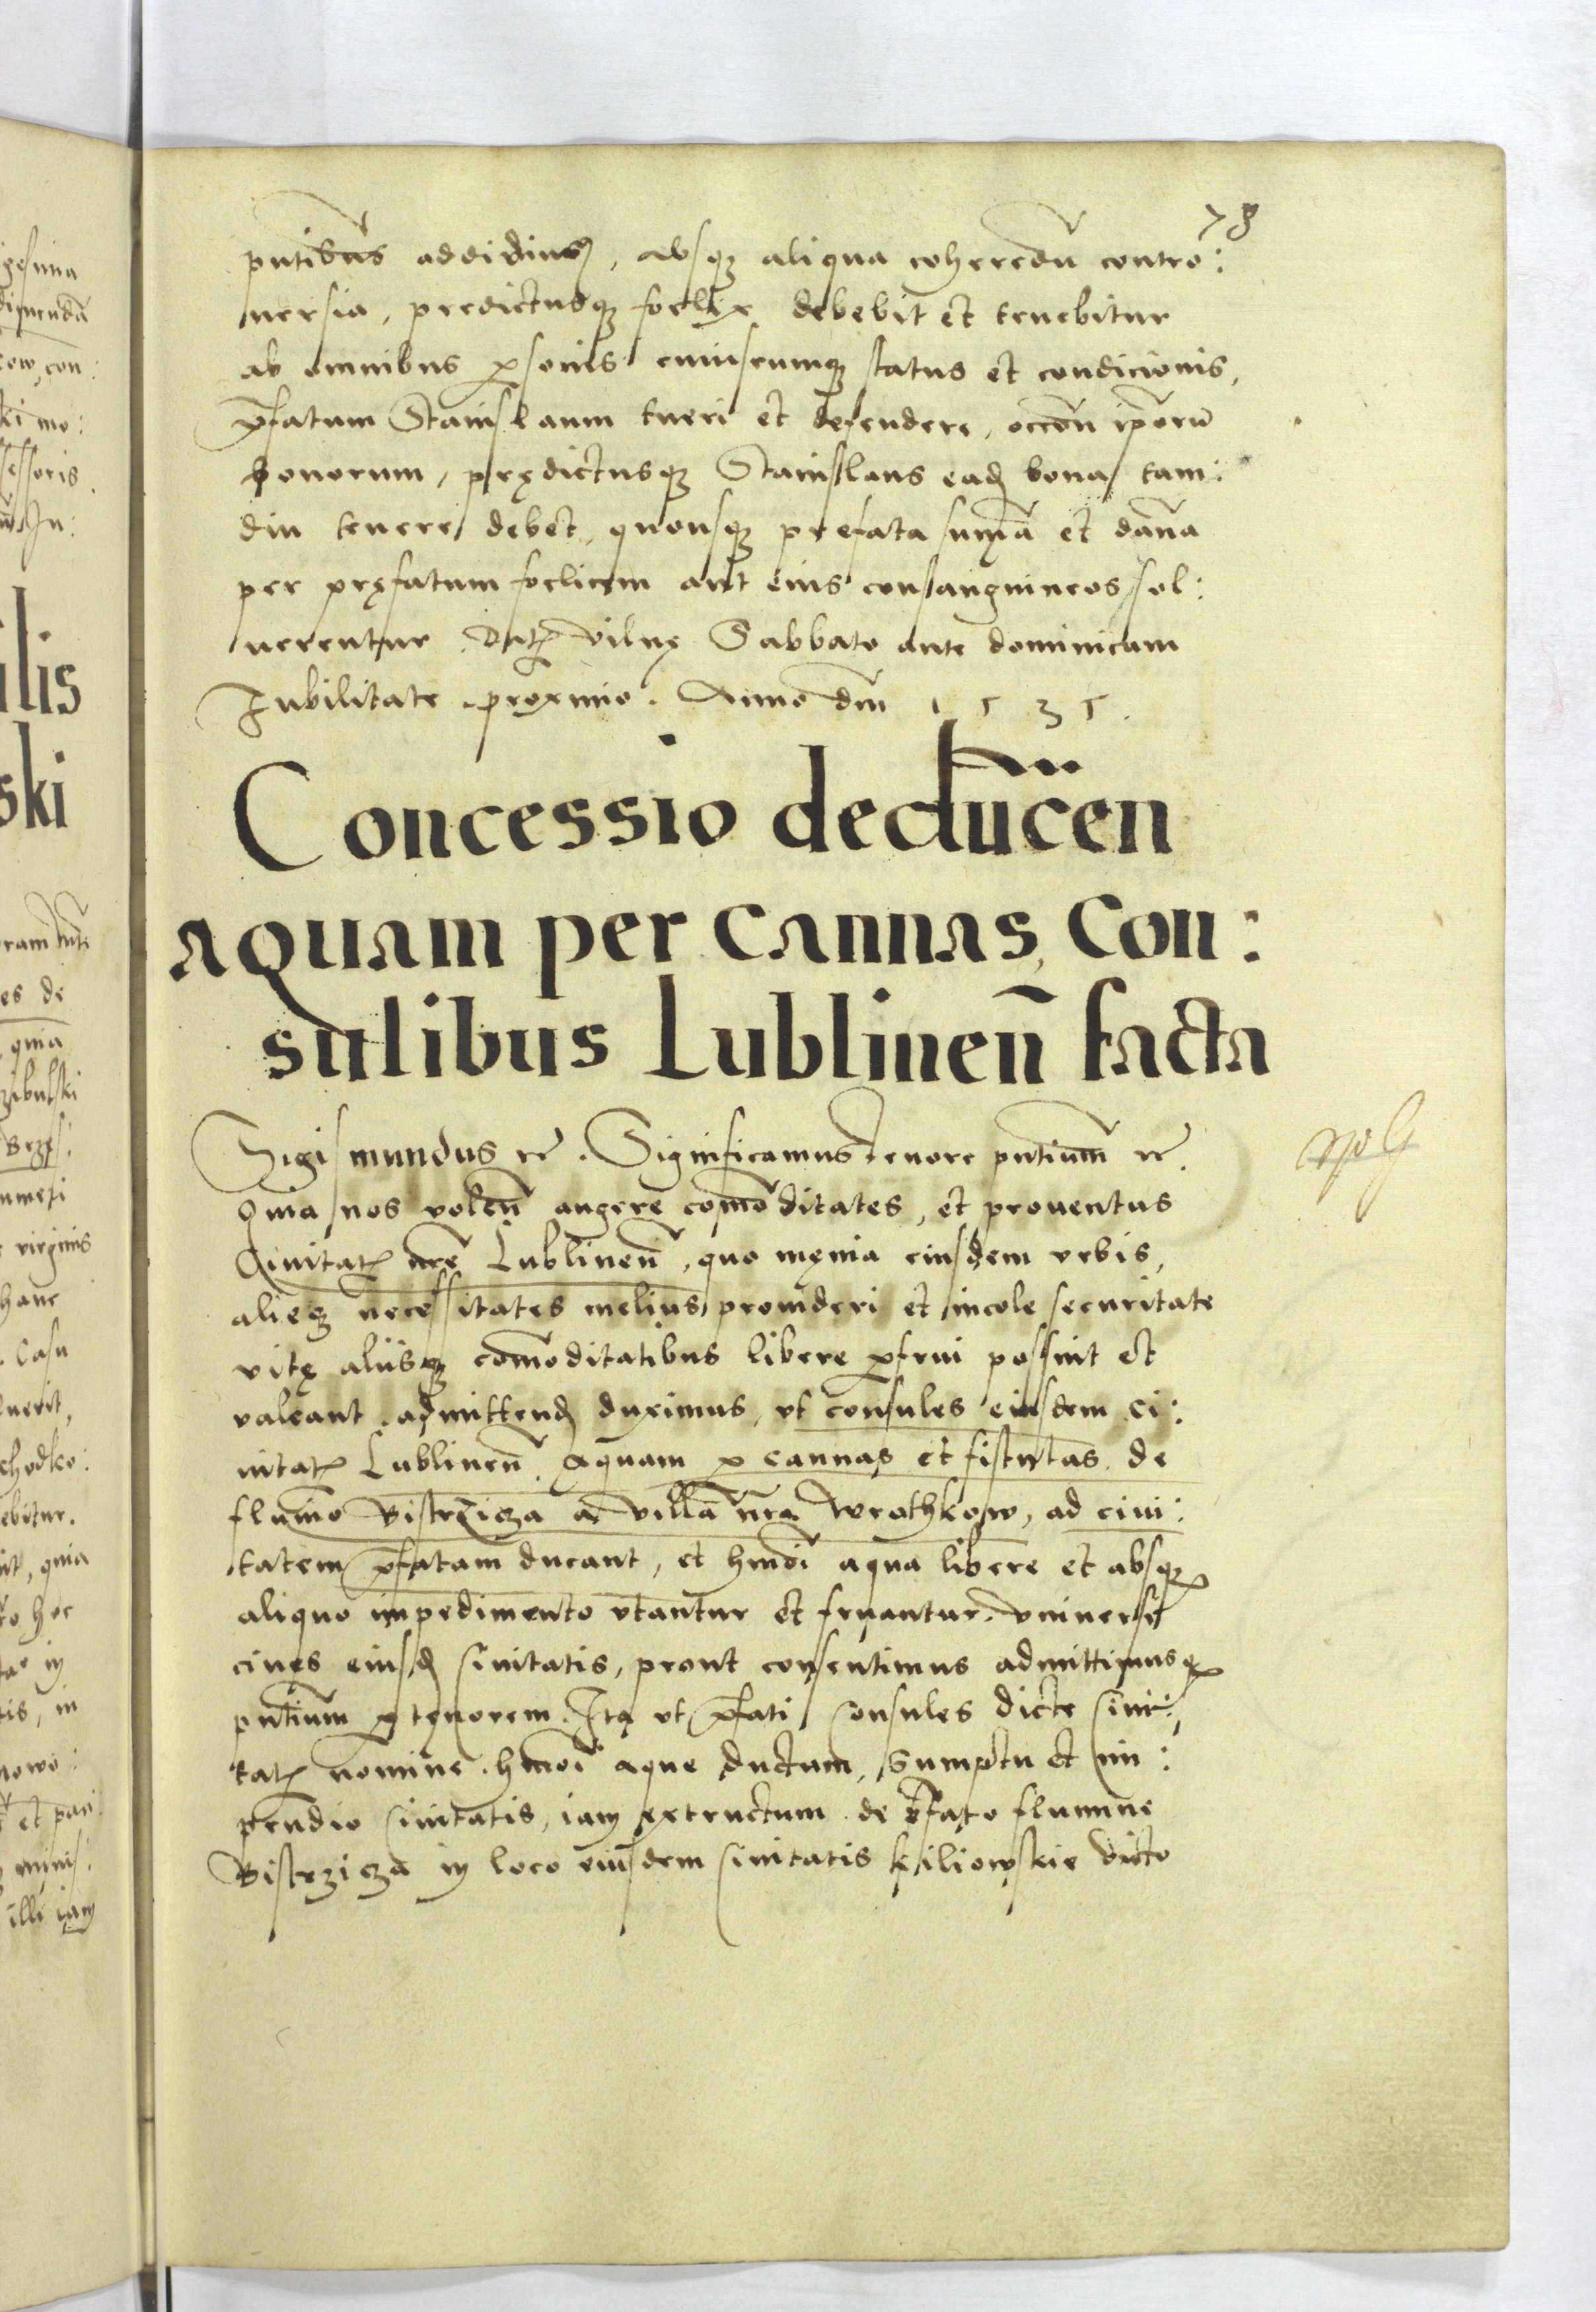 78
pntibus addidimus, absq aliqua coheredũ contro:
uersia, predictusq foelix debebit et tenebitur
ab omnibus psonis cuiuscumq status et condicionis,
pfatum Stanislaum tueri et defendere, occoñ ipsorũ
bonorum, prędictusq Stanislaus ead bona tam:
diu tenere debet, quousq prefata sum̃a et dam̃na
per pręfatum foelicem aut eius consanguineos sol:
uerentur. Dat Vilnę Sabbato ante dominicam
Iubilitate proximo. Anno dñi 1535.
Concessio deducen̄
aquam per cannas, Con:
sulibus Lublineñ facta
Sigismundus rč. Significamus tenore pntium̃ rč.
Quia nos voleñ augere com̃oditates, et prouentus
Ciuitat nrẽ Lublineñ, quo męnia eiusdem vrbis,
alieq necessitates melius prouideri et incole securitate
vitę aliisq com̃oditatibus libere pfrui possint et
valeant. admittend duximus, vt consules eiusdem ci:
uitat Lublineñ. Aquam p cannas et fistulas de
flumĩe Bistrzicza a villa nra Wrothkow, ad ciui:
tatem pfatam ducant, et hmõi aqua libere et absq
aliquo impedimento vtantur et fruantur. vniuersi
ciues eiusd ciuitatis, prout consentimus admittimusq
pntium̃ p tenorem. Ita vt pfati consules dicte ciui:
tat nomine. hmõi aque ductum, sumptu et im:
pendio ciuitatis, iam extructum de pfato flumine
Bistrzicza in loco eiusdem ciuitatis kiliowskie dicto